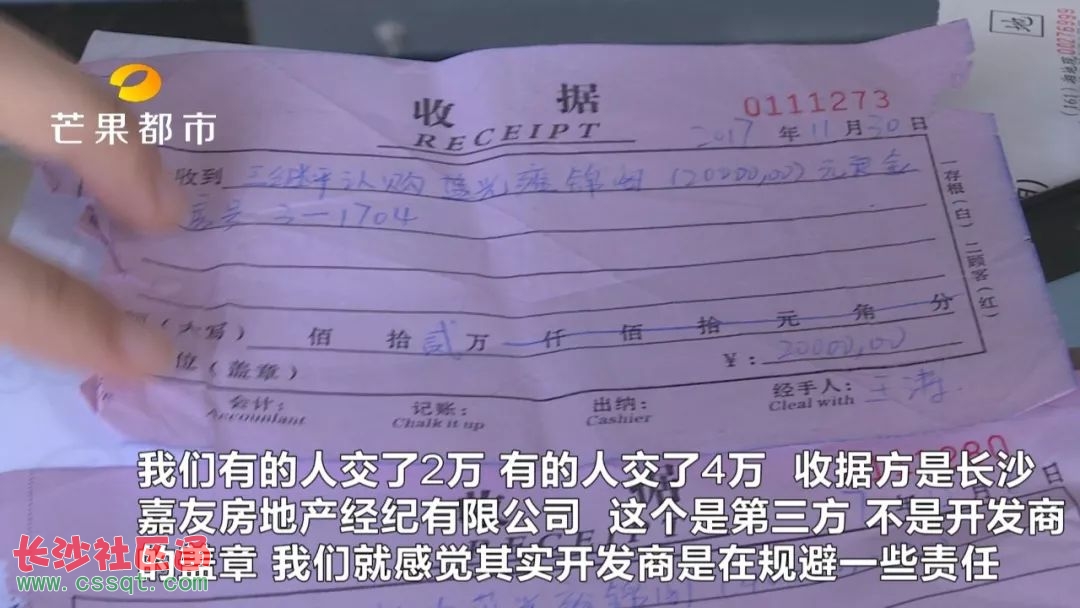 芒果都市
收 据
RECEIPT
0111273
2017 年 11 月 30 日
收到 认购 (20000,00)元定金
房号 3-1704
(大写) 佰 拾 贰 万 仟 佰 拾 元 角 分
位(盖章) ¥: 20000,00
会计: 记账: 出纳: 经手人: 王涛
Accountant Chalk it up Cashier Cleal with
一存根(白)二顾客(红)
地
(161)
00276999
收 据
日
我们有的人交了2万 有的人交了4万 收据方是长沙
嘉友房地产经纪有限公司 这个是第三方 不是开发商
的盖章 我们就感觉其实开发商是在规避一些责任
长沙社区通
www.cssqt.com